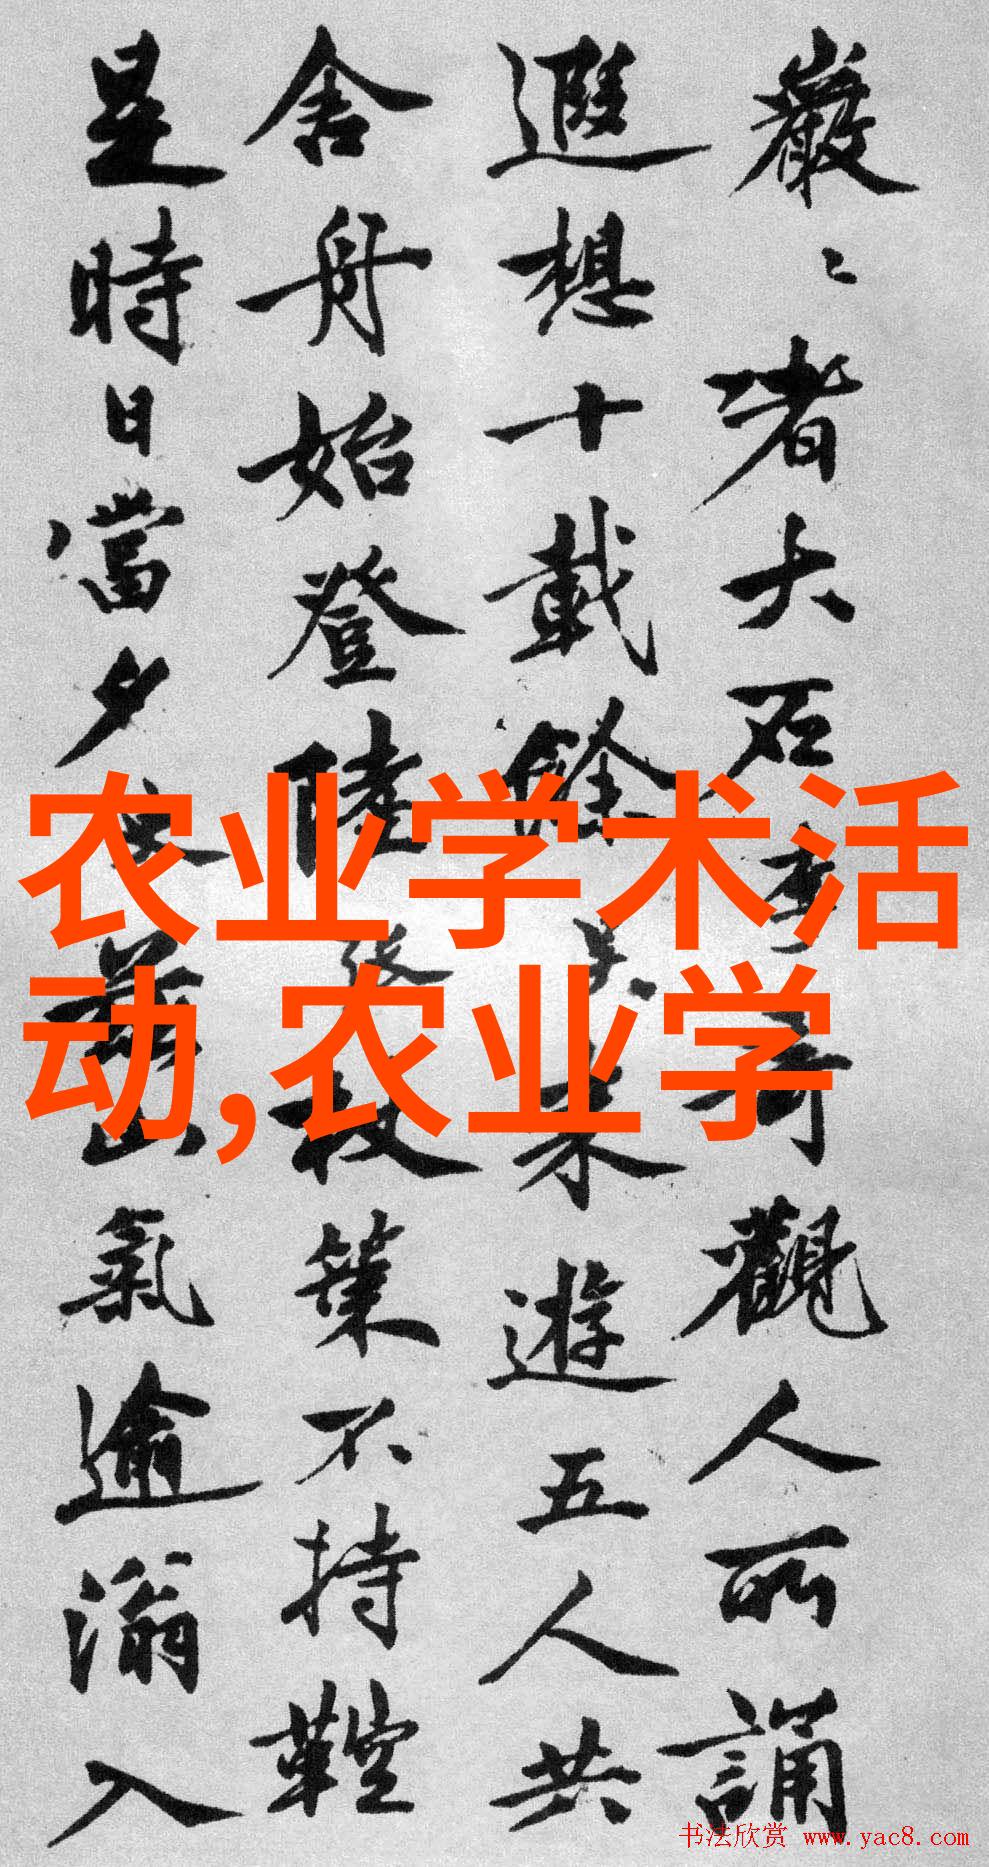 巖〻者大石李奇觀人所誦
遐想十載餘矣来遊五人共
舍舟始登陸杖策不持鞚
是時日當夕氣逾滃入
农业学术活
动,农业学
书法欣赏 www.yac8.com